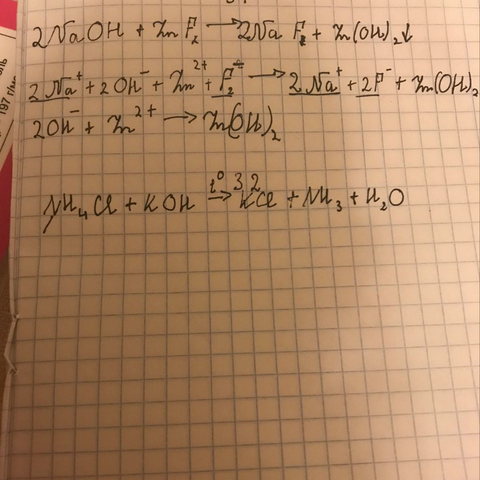 2NaOH + ZnF₂ → 2NaF + Zn(OH)₂↓
2Na⁺ + 2OH⁻ + Zn²⁺ + F₂⁻ → 2Na⁺ + 2F⁻ + Zn(OH)₂
2OH⁻ + Zn²⁺ → Zn(OH)₂
t° 3 2
NH₄Cl + KOH → KCl + NH₃ + H₂O
197 г/мл